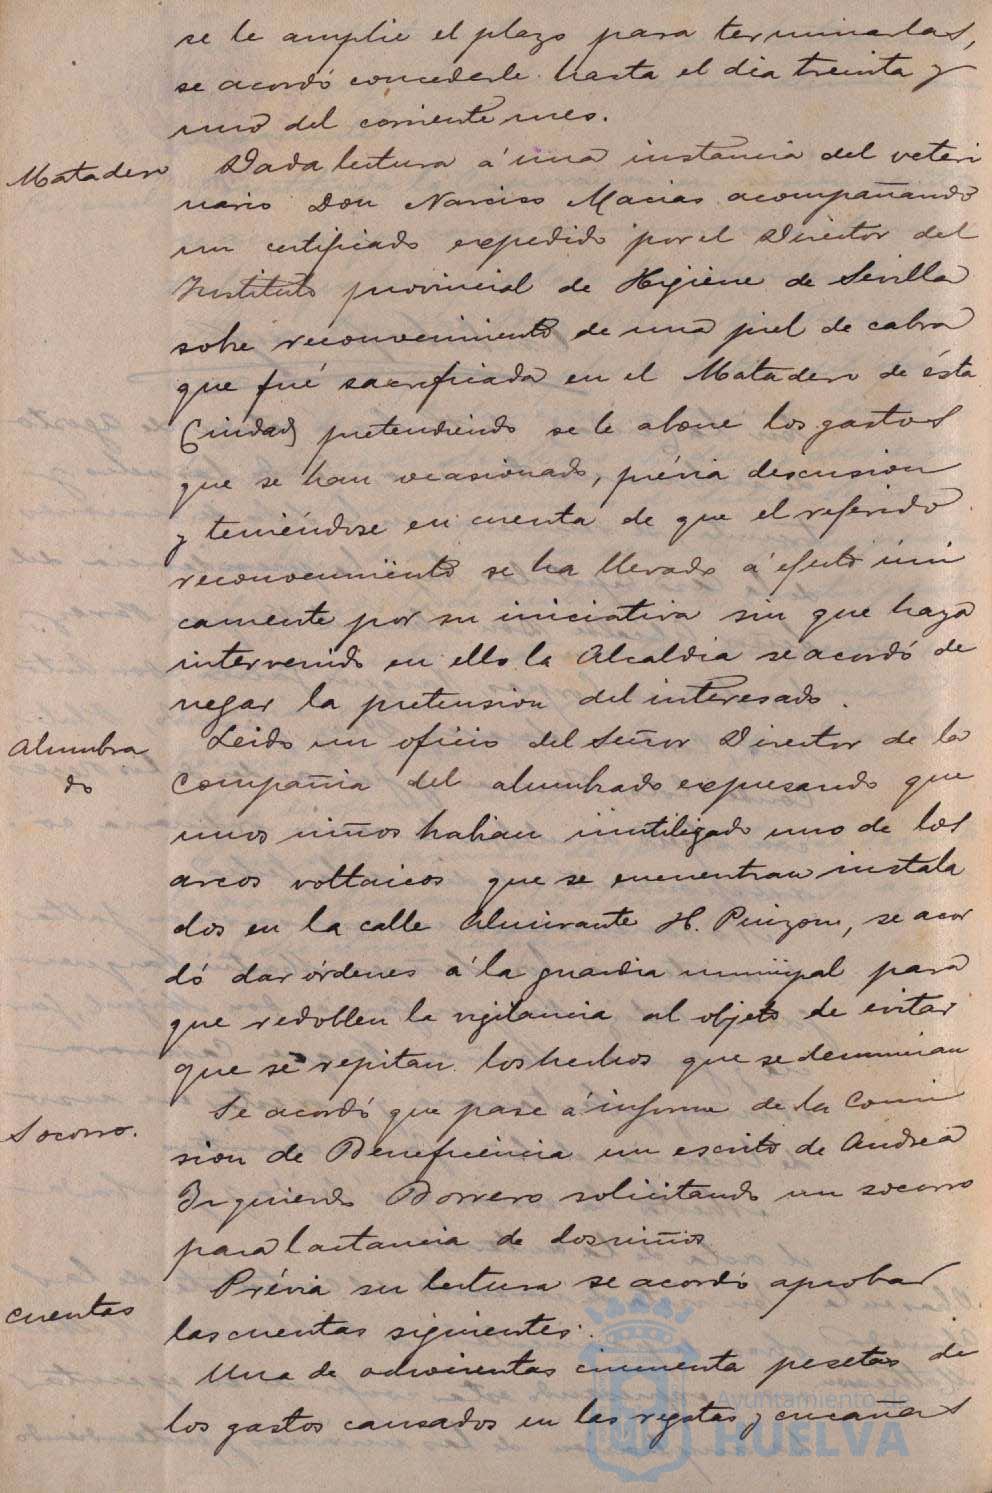 se le amplie el plazo para terminarlas,
se acordó concederle hasta el dia treinta y
uno del corriente mes.
Matadero
Dada lectura á una instancia del veteri
nario Don Narciso Macias acompañando
un certificado expedido por el Director del
Instituto provincial de Higiene de Sevilla
sobre reconocimiento de una piel de cabra
que fué sacrificada en el Matadero de ésta
Ciudad pretendiendo se le abone los gastos
que se han ocasionado, prévia descusion
y teniéndose en cuenta de que el referido
reconocimiento se ha llevado á efecto úni
camente por su iniciativa sin que haya
intervenido en ello la Alcaldia se acordó de
negar la pretension del interesado.
Alumbra
do
Leido un oficio del Señor Director de la
Compañia del alumbrado expresando que
unos niños habian inutilizado uno de los
arcos voltaicos que se encuentran instala
dos en la calle Almirante H. Pinzon, se acor
dó dar órdenes á la guardia municipal para
que redoblen la vigilancia al objeto de evitar
que se repitan los hechos que se denuncian
Socorro.
Se acordó que pase á informe de la Comi
sion de Beneficiencia un escrito de Andrea
Izquierdo Borrero solicitando un socorro
para lactancia de dos niños
cuentas
Prévia su lectura se acordó aprobar
las cuentas siguientes:
Una de doscientas cincuenta pesetas de
los gastos causados en las regatas y cucañas
Ayuntamiento de
HUELVA